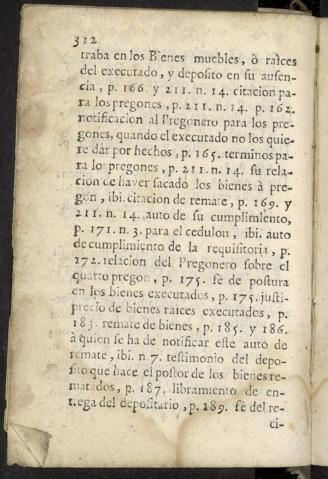 312
traba en los Bienes muebles, ò raìces
del executado, y deposito en su ausen-
cia, p. 166. y 211. n. 14. citacion pa-
ra los pregones, p. 211. n. 14. p. 162.
notificacion al Pregonero para los pre-
gones, quando el executado no los quie-
re dàr por hechos, p. 165. terminos pa-
ra los pregones, p. 211. n. 14. su rela-
cion de haver sacado los bienes à pre-
gon, ibi. citacion de remate, p. 169. y
211. n. 14. auto de su cumplimiento,
p. 171. n. 3. para el cedulon, ibi. auto
de cumplimiento de la requisitoria, p.
172. relacion del Pregonero sobre el
quarto pregon, p. 175. fè de postura
en los bienes executados, p. 175. justi-
precio de bienes raìces executados, p.
183. remate de bienes, p. 185. y 186.
à quien se ha de notificar este auto de
remate, ibi. n. 7. testimonio del depo-
sito que hace el postor de los bienes re-
matados, p. 187. libramiento de en-
trega del depositario, p. 189. fè del re-
ci-